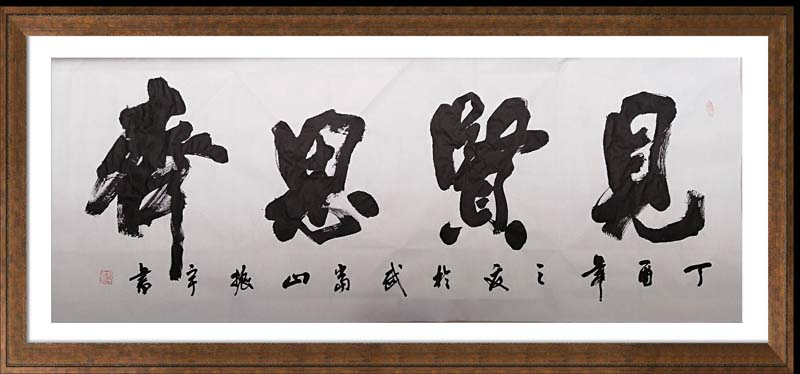 見賢思齊
丁酉年之夏於武當山振宇書